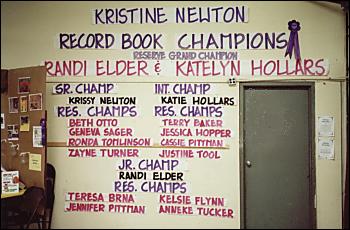 KRISTINE NEWTON
RECORD BOOK CHAMPIONS
RESERVE GRAND CHAMPION
RANDI ELDER & KATELYN HOLLARS
SR. CHAMP
KRISSY NEWTON
RES. CHAMPS
BETH OTTO
GENEVA SAGER
RONDA TOMLINSON
ZAYNE TURNER
INT. CHAMP
KATIE HOLLARS
RES. CHAMPS
TERRY BAKER
JESSICA HOPPER
CASSIE PITTMAN
JUSTINE TOOL
JR. CHAMP
RANDI ELDER
RES. CHAMPS
TERESA BRNA
JENNIFER PITTMAN
KELSIE FLYNN
ANNEKE TUCKER